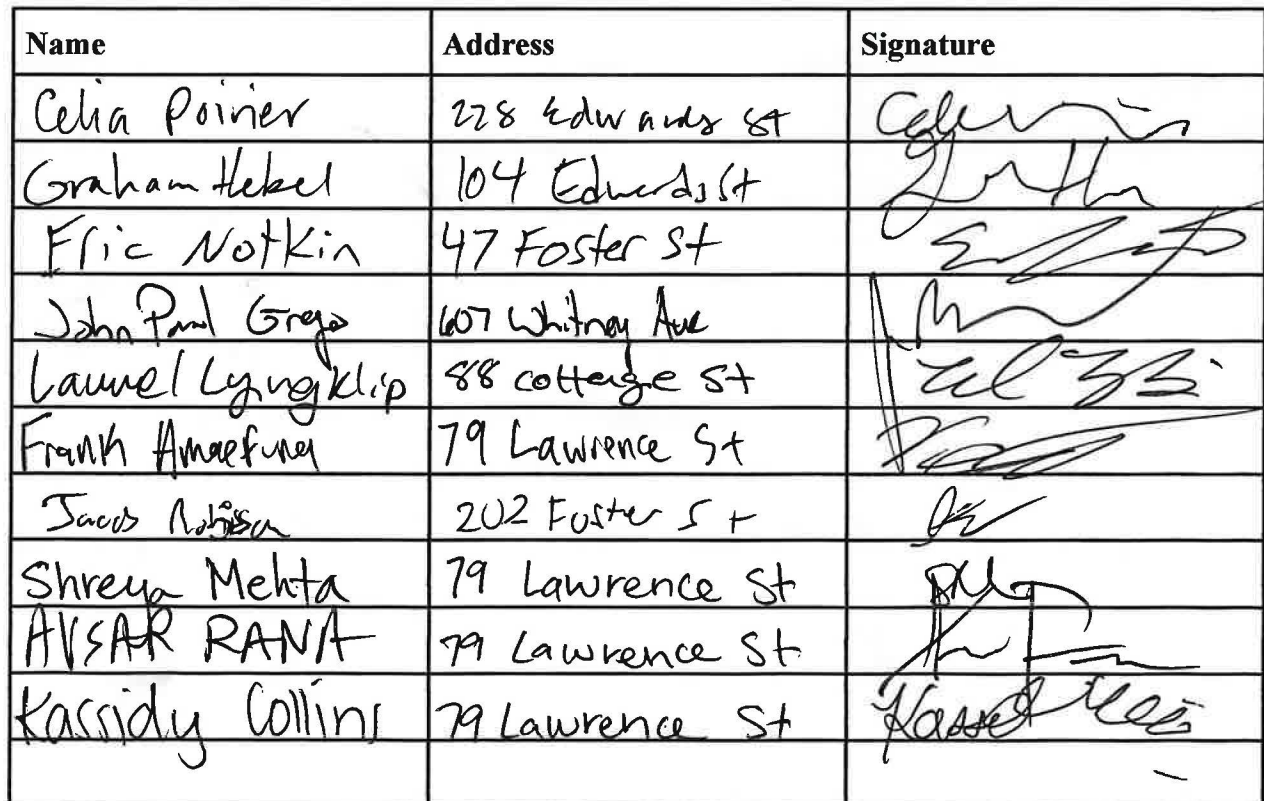 Name Address Signature
Celia Poirier 228 Edwards St
Graham Hebel 104 Edwards St
Eric Notkin 47 Foster St
John Paul Grego 607 Whitney Ave
Laurel Lyngklip 88 cottage St
Frank Amaefuna 79 Lawrence St
Jacob Robison 202 Foster St
Shreya Mehta 79 Lawrence St
AVSAR RANA 79 Lawrence St
Kassidy Collins 79 Lawrence St